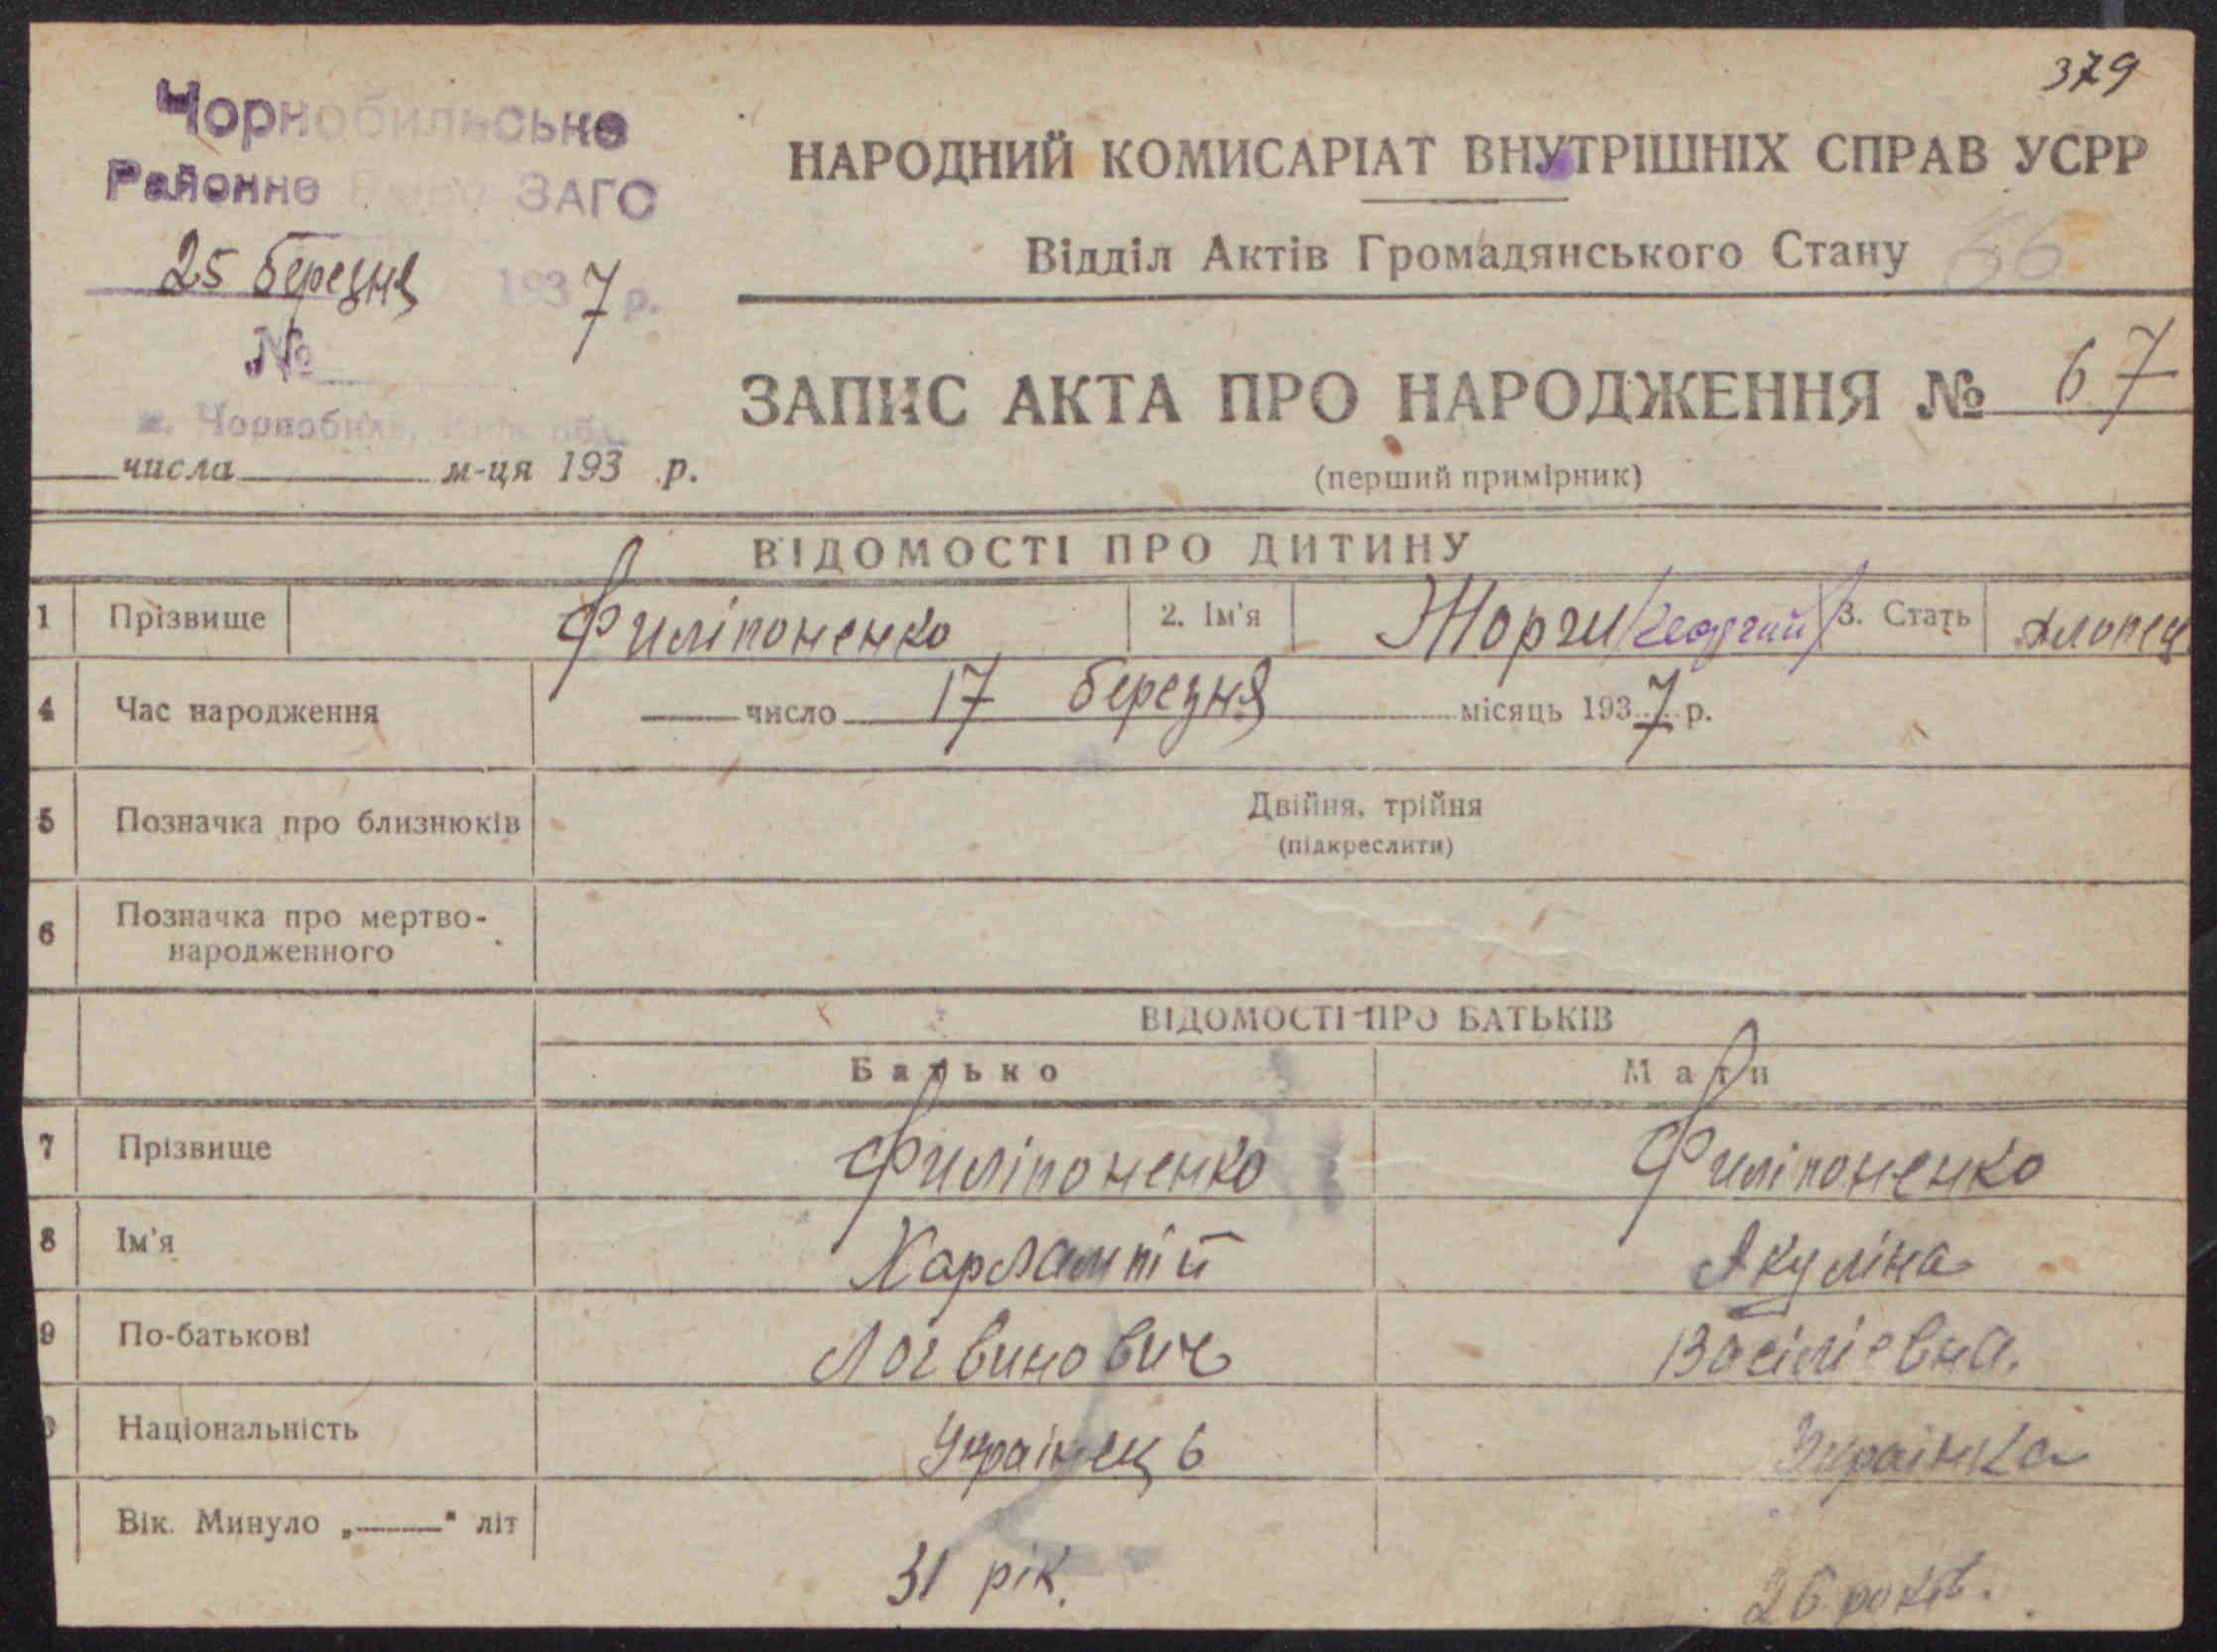 379
Чорнобильське
Районне Бюро ЗАГС
25 березня 1937 р.
№
м. Чорнобиль,
числа м-ця 193 р.
НАРОДНИЙ КОМИСАРІАТ ВНУТРІШНІХ СПРАВ УСРР
Відділ Актів Громадянського Стану 66
ЗАПИС АКТА ПРО НАРОДЖЕННЯ № 67
(перший примірник)
ВІДОМОСТІ ПРО ДИТИНУ
1 Прізвище Филіпоненко 2. Ім'я Жорги /Георгий/ 3. Стать хлопец
4 Час народження число 17 березня місяць 1937 р.
5 Позначка про близнюків Двійня, трійня
(підкреслити)
6 Позначка про мертво-
народженного
ВІДОМОСТІ ПРО БАТЬКІВ
Батько Мати
7 Прізвище Филіпоненко Филіпоненко
8 Ім'я Харлампій Акуліна
9 По-батькові Логвинович Васілієвна.
Національність Украінець Украінка
Вік. Минуло „——" літ 31 рік. 26 років.